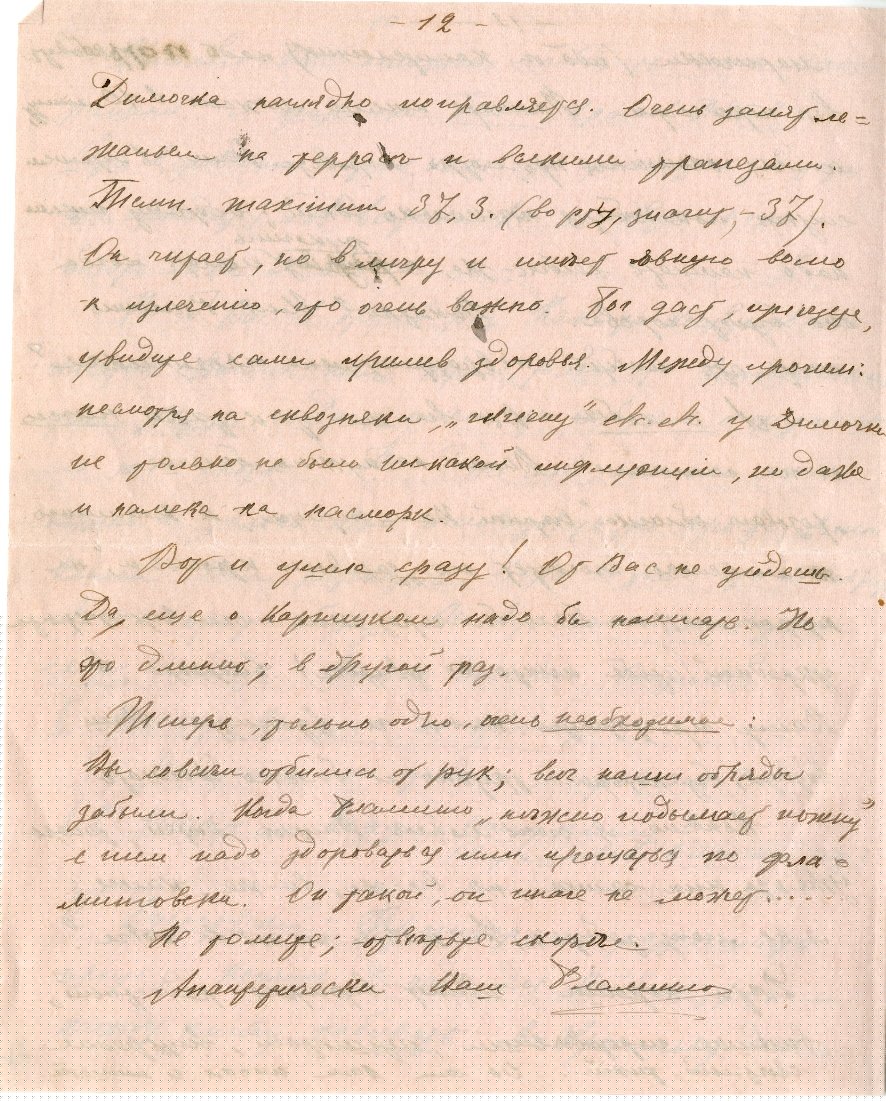 - 12 -
Димочка наглядно поправляется. Очень занят ле=
жаньем на террасѣ и всякими трапезами.
Темп. maximum 37,3. (во рту, значит, - 37).
Он читает, но в мѣру и имѣет явную волю
к излечению, что очень важно. Бог даст, приѣдете,
увидите сами прилив здоровья. Между прочим:
несмотря на сквозняки, „гигиену" М. М. у Димочки
не только не было никакой инфлуэнцы, но даже
и намека на насморк.
Вот и улика сразу! От Вас не уйдешь.
Да, еще о Карницком надо бы написать. Но
это длинно; в другой раз.
Теперь, только одно, очень необходимое:
Вы совсѣм отбились от рук; всѣ наши обряды
забыли. Когда Фламинго „нѣжно подымает ножку"
с ним надо здороваться или прощаться по фла=
минговски. Он такой, он иначе не может....
Не томите; отвѣтьте скорѣе.
Ваш Фламинго